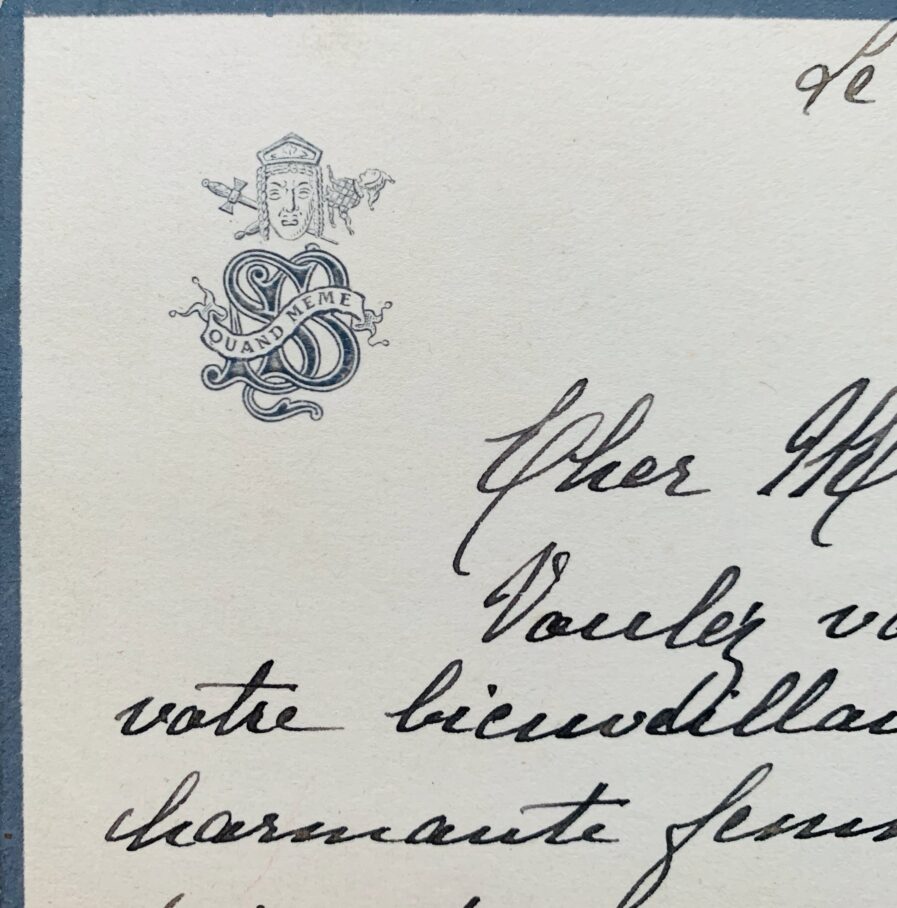 Le
QUAND MEME
Cher M
Voulez vo
votre bienveillan
charmante femm